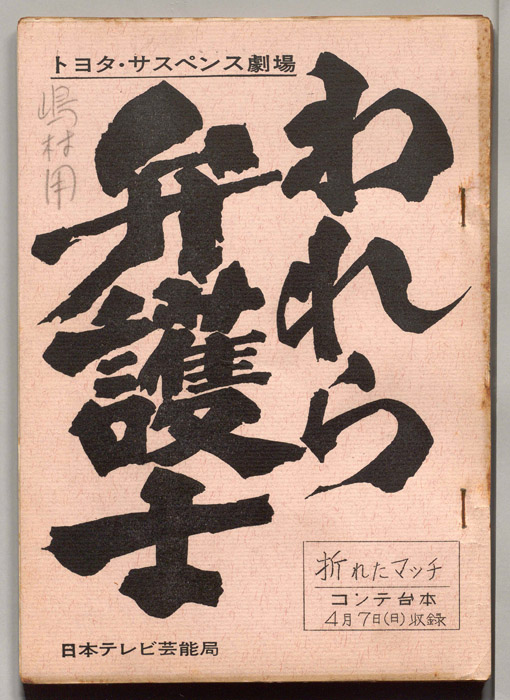 トヨタ・サスペンス劇場
嶋村用
われら
弁護士
折れたマッチ
コンテ台本
4月7日(日)収録
日本テレビ芸能局